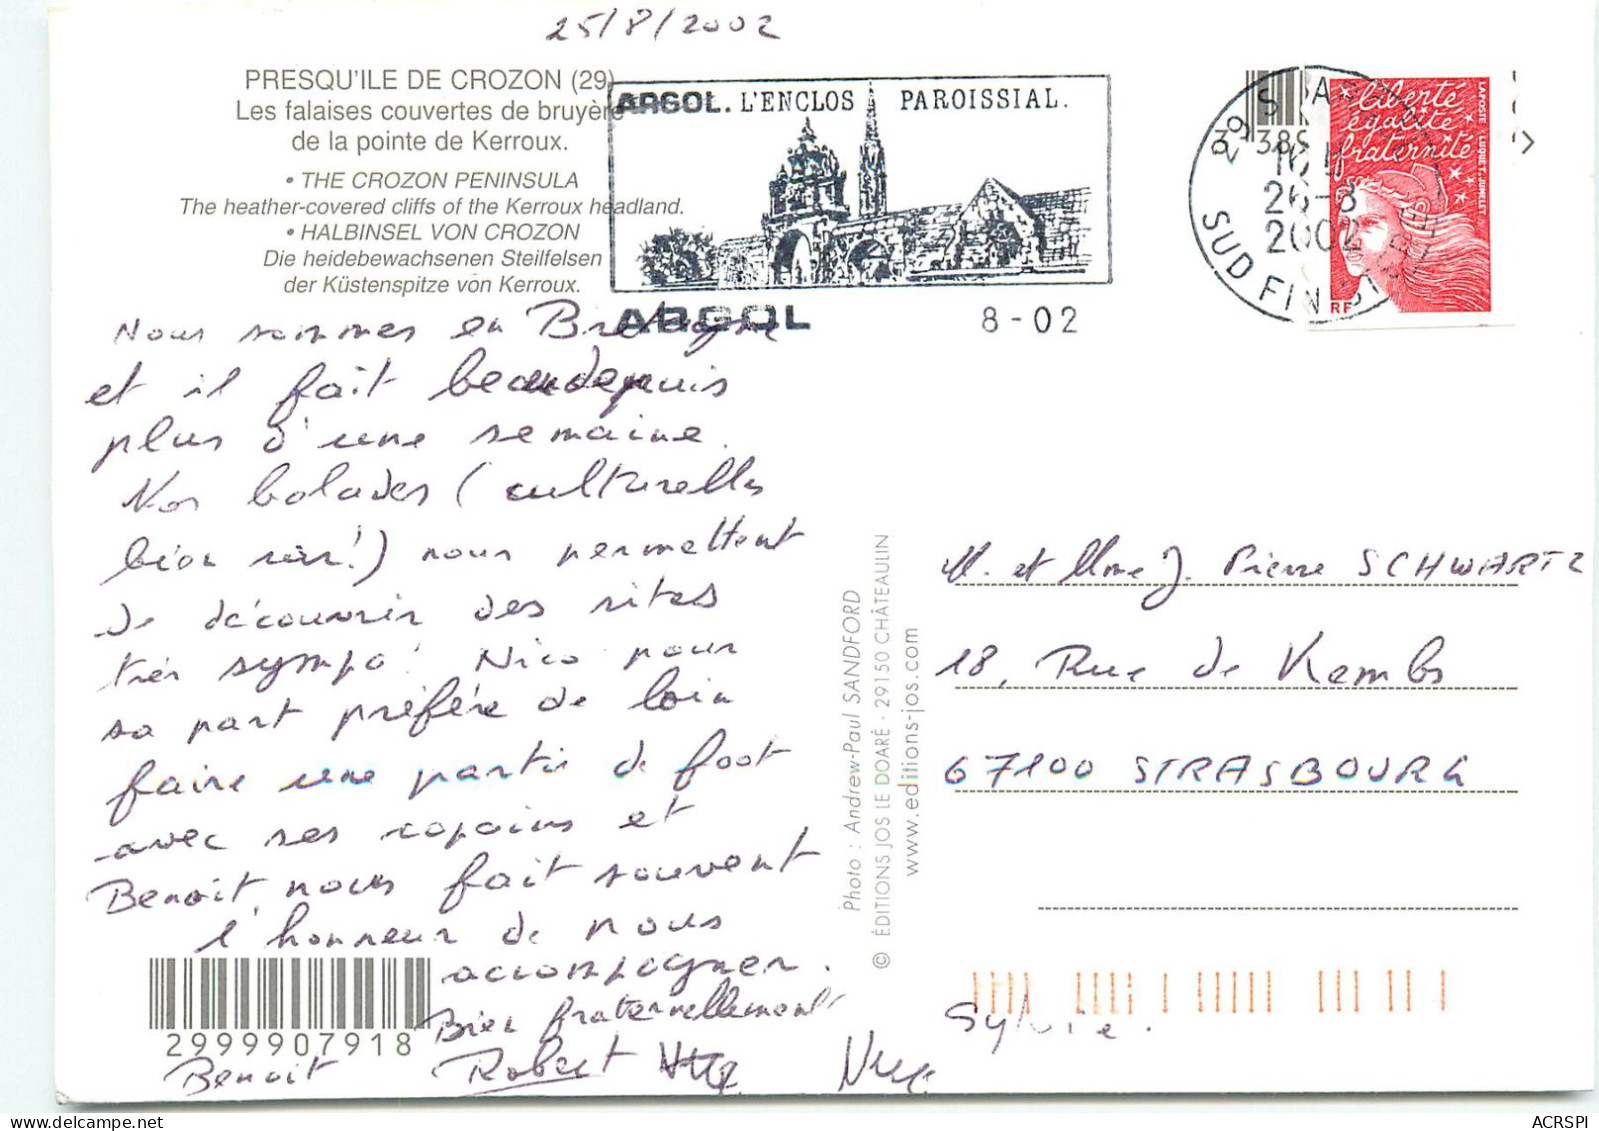 25/8/2002
PRESQU'ILE DE CROZON (29)
Les falaises couvertes de bruyère
de la pointe de Kerroux.
• THE CROZON PENINSULA
The heather-covered cliffs of the Kerroux headland.
• HALBINSEL VON CROZON
Die heidebewachsenen Steilfelsen
der Küstenspitze von Kerroux.
ARGOL. L'ENCLOS PAROISSIAL.
ARGOL 8-02
26-8
2002
SUD FINIST
liberté
égalité
fraternité
RF
LA POSTE
Nous sommes en Bretagne
et il fait beau depuis
plus d'une semaine.
Nos balades (culturelles
bien sûr!) nous permettent
de découvrir des sites
très sympa! Nico pour
sa part préfère de loin
faire une partie de foot
avec ses copains et
Benoit, nous fait souvent
l'honneur de nous
accompagner.
Bien fraternellement
Benoit Robert
Sylvie.
2999907918
Photo : Andrew-Paul SANDFORD
© ÉDITIONS JOS LE DOARÉ - 29150 CHÂTEAULIN
www.editions-jos.com
M. et Mme J. Pierre SCHWARTZ
18, Rue de Kembs
67100 STRASBOURG
ACRSPI